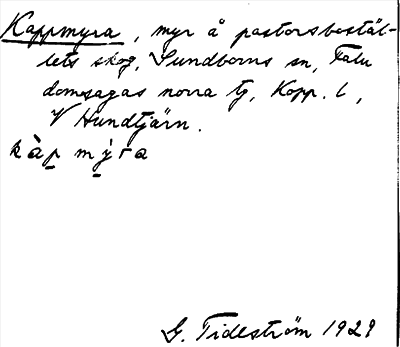 Kappmyra, myr å pastorsbostäl-
lets skog, Sundborns sn, Falu
domsagas norra tg, Kopp. l,
V Hundtjärn.
kàp mýra
G. Tideström 1929